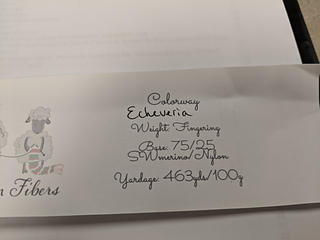 Colorway
Echeveria
Weight: Fingering
Base: 75/25
SWmerino/Nylon
Yardage: 463yds/100g
Fibers